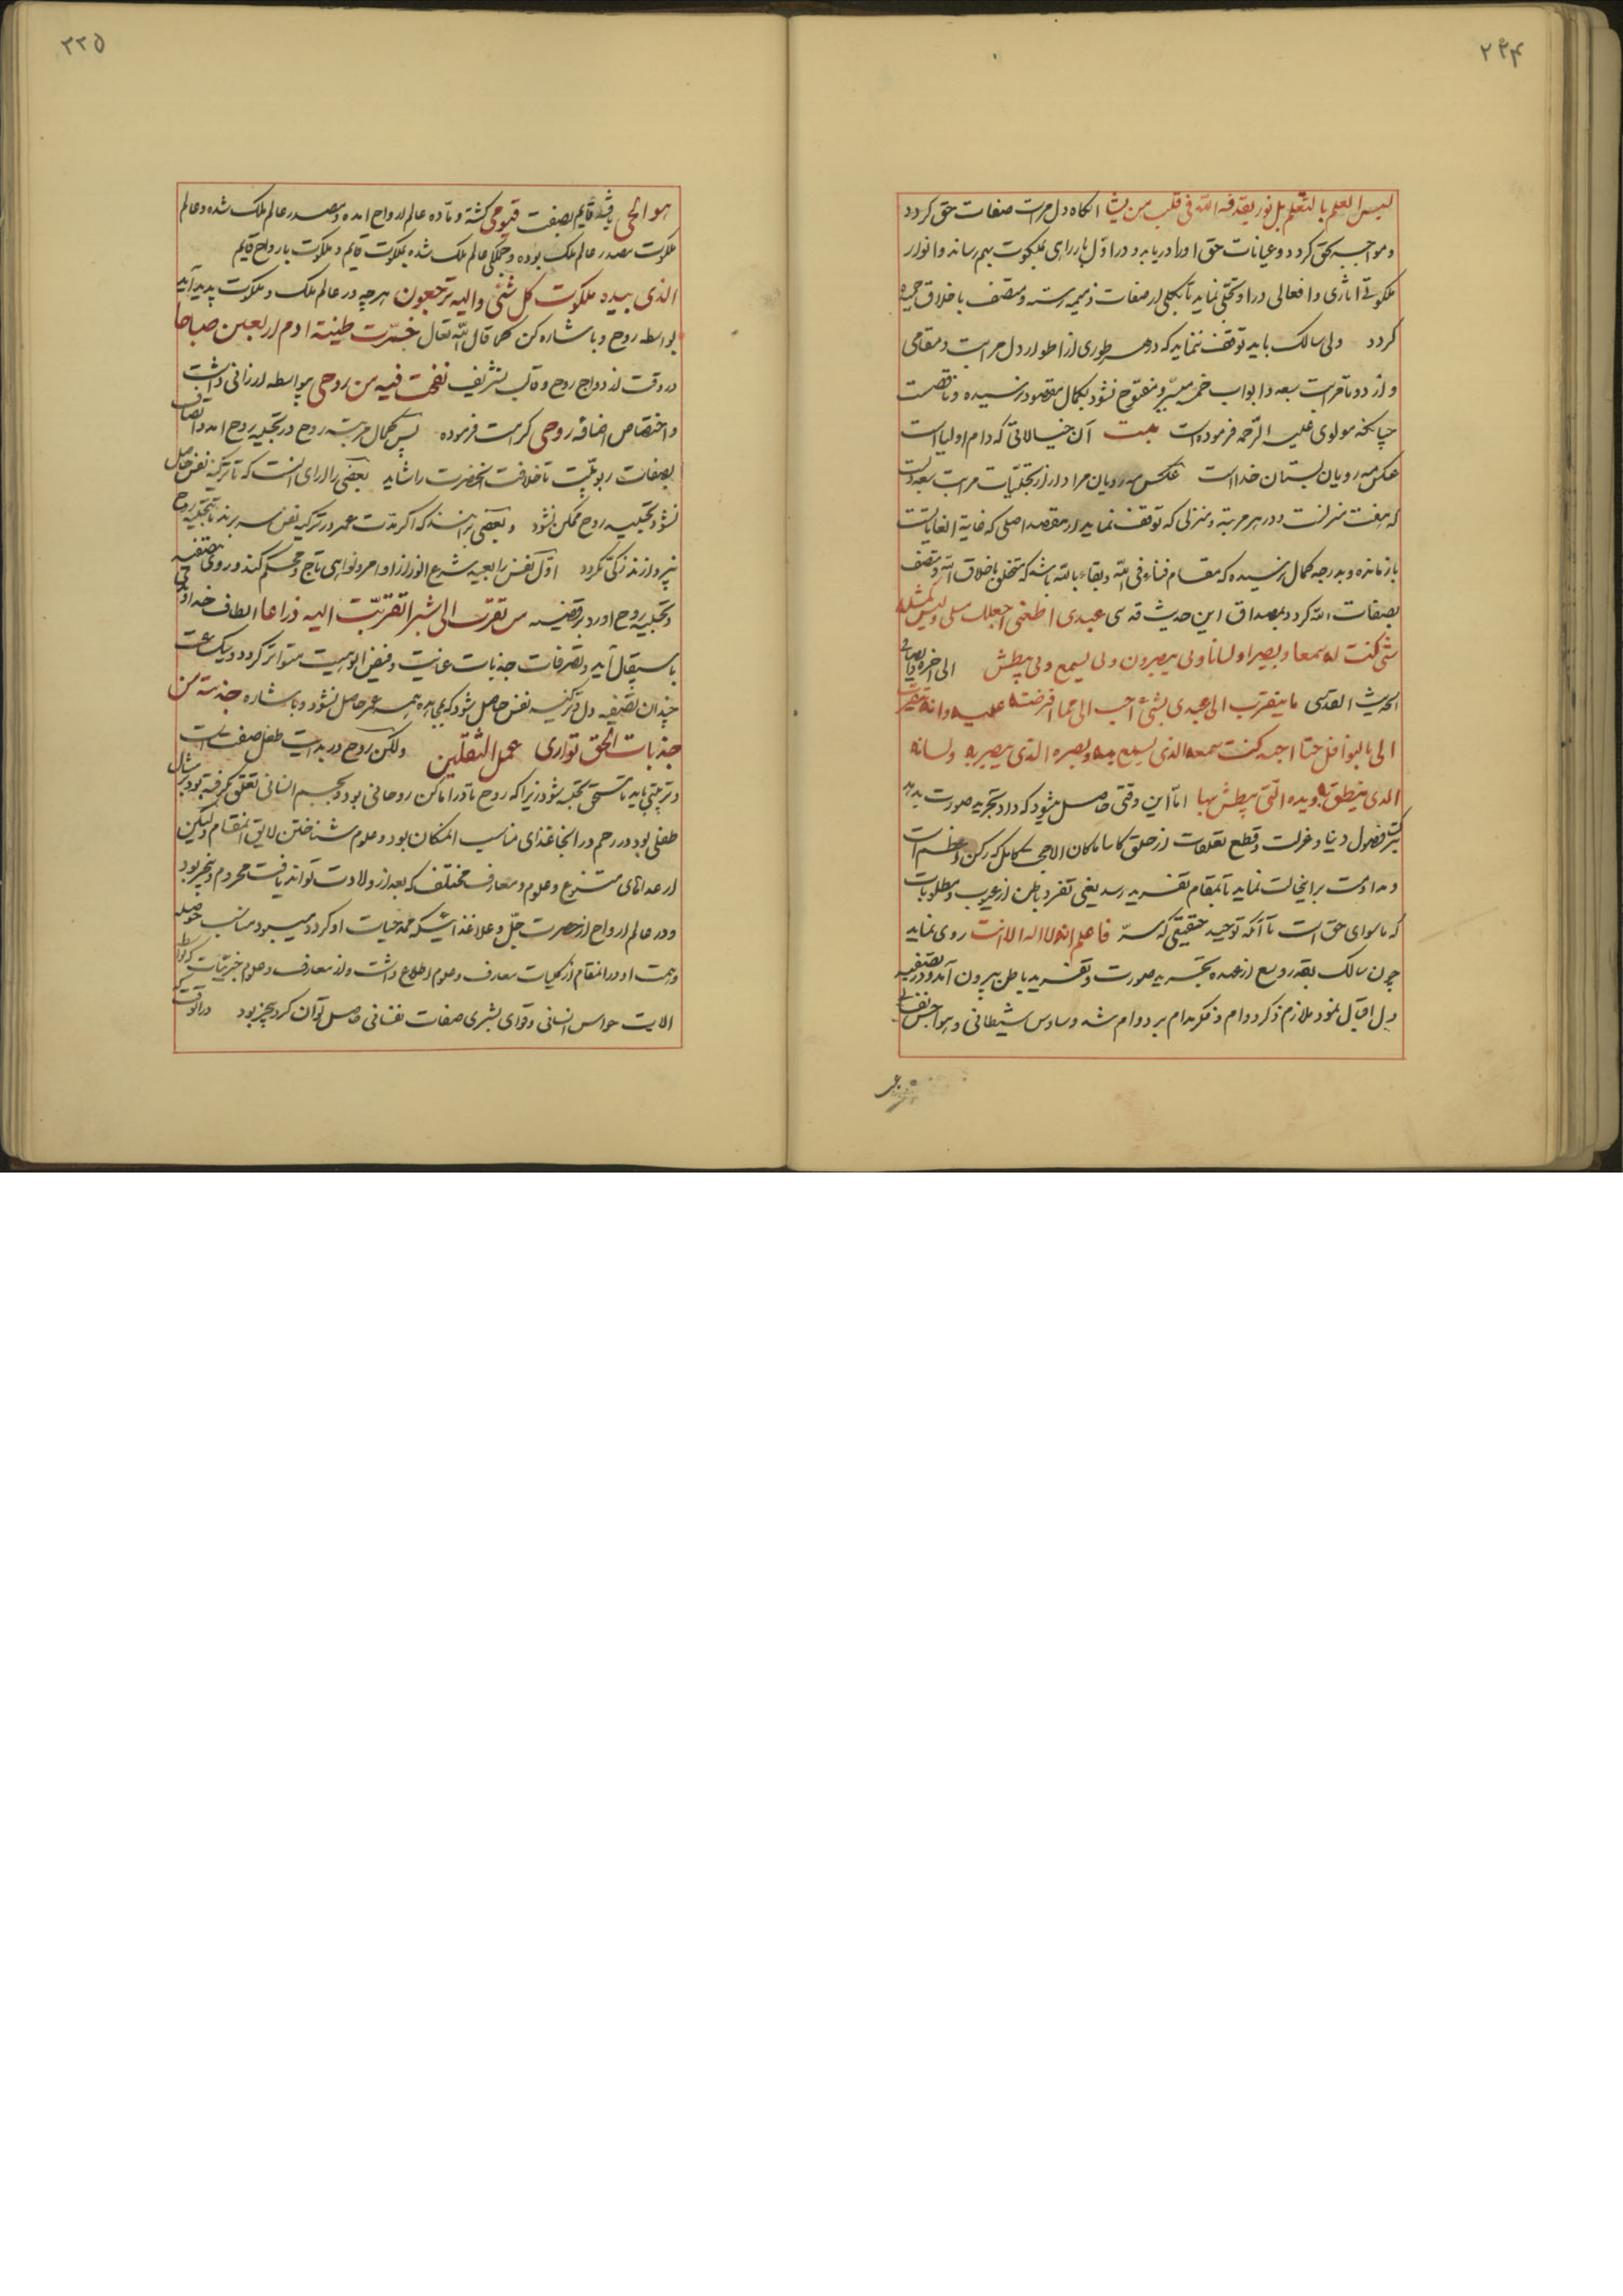 ۲۳۴
لیس العلم بالتعلم بل نور یقذفه الله فی قلب من یشا انکاه دل مرات صفات حق کردد
و مواجب بحق کردد و عیانات حق اورا دریابد و در اول بار رای بملکوت بهم رساند و انوار
ملکوتی اثاری و افعالی در او تجلی نماید تا بکلی از صفات ذمیمه رسته و متصف باخلاق حمیده
کردد ولی سالک باید توقف ننماید که در هر طوری از اطوار دل مراتب و مقامی
و از ده تا مراتب سبعه و ابواب خمس سیر و مفتوح نشود بکمال مقصود نرسیده و ناقصست
چنانکه مولوی علیه الرحمه فرموده است بیت آن خیالاتی که دام اولیا است
عکس مه رویان بستان خدا است عکس مه رویان مراد از تجلیات مراتب سبعه دلست
که هفت منزلست و در هر مرتبه و منزلی که توقف نماید از مقصد اصلی که غایة الغایاتست
باز مانده و بدرجه کمال نرسیده که مقام فناء فی الله و بقاء بالله باشد که متخلق باخلاق الله و متصف
بصفات الله کردد بمصداق این حدیث قدسی عبدی اطعنی اجعلک مثلی و لیس کمثله
شئ کنت له سمعا و بصرا و لسانا و بی یبصرون و بی یسمع و بی یبطش الی اخره
الحدیث القدسی ما یتقرب الی عبدی بشئ احب الی مما افرضته علیه و انه یتقرب
الی بالنوافل حتا احبه کنت سمعه الذی یسمع به و بصره الذی یبصر به و لسانه
الذی ینطق به و یده التی یبطش بها اما این وقتی حاصل میشود که داد تجرید صورت بدهد
بترک فضول دنیا و عزلت و قطع تعلقات از خلق کاینا ماکان الا حجی کامل که رکن اعظم است
و مداومت بر اینحالت نماید تا بمقام تفرید رسد یعنی تفرد باطن از عیوب و مطلوبات
که ماسوای حق است تا آنکه توحید حقیقی که سر فاعلم انه لا اله الا انت روی نماید
چون سالک بقدر وسع از عهده تجرید صورت و تفرید باطن بیرون آمد و در تصفیه
دل اقبال نمود ملازم ذکر دوام و فکر مدام بر دوام شد وساوس شیطانی و هواجس نفسانی
۲۳۵
هو الحی باشد قایم بصفت قیومی کشته و ماده عالم ارواح امده و مصدر عالم ملک شده و عالم
ملکوت مصدر عالم ملک بوده و جملکی عالم ملک شده بملکوت قایم و ملکوت بارواح قایم
الذی بیده ملکوت کل شئی و الیه ترجعون هر چه در عالم ملک و ملکوت پدید آید
بواسطه روح و باشاره کن کما قال الله تعال خمرت طینة ادم اربعین صباحا
در وقت ازدواج روح و قالب بتشریف نفخت فیه من روحی بیواسطه ارزانی داشت
و اختصاص اضافه روحی کرامت فرموده پس کمال مرتبه روح در تجلیه روح امد و اتصاف
بصفات ربوبیت تا خلافت انحضرت را شاید بعضی را رای انست که تا تزکیه نفس حاصل
نشود تجلیه روح ممکن نشود و بعضی برانند که اکر مدت عمر در تزکیه نفس بسر برند تا بتجلیه روح
نپردازند زکی نکردد اول نفس را بعیبه شرع انور از اوامر و نواهی تاج و محکم کند و روی بتصفیه
و تجلیه روح اورد بر قضیه من تقرب الی شبرا تقربت الیه ذراعا الطاف خداوندی
باستقبال آید و تصرفات جذبات عنایت و فیض الوهیت متواتر کردد و یک ساعت
چندان تصفیه دل و تزکیه نفس حاصل شود که بمجاهده همه عمر حاصل نشود و باشاره جذبة من
جذبات الحق توازی عمل الثقلین ولکن روح در بدایت طفل صفت است
و تربیتی باید تا مستحق تجلیه شود زیرا که روح تا در اماکن روحانی بود و بجسم انسانی تعلق نکرفته بود بر مثال
طفلی بود در رحم در انجا غذای مناسب انمکان بود و علوم شناختن لایق انمقام ولیکن
از غذاهای متنوع و علوم و معارف مختلف که بعد از ولادت تواند یافت محروم و بیخبر بود
و در عالم ارواح از حضرت جل و علا غذائیکه ممد حیات او کردد میبرد مناسب حوصله
و همت او در انمقام از کلیات معارف و علوم اطلاع داشت ولی از معارف و علوم جزئیات که بواسطه
الایت حواس انسانی و قوای بشری صفات نفسانی حاصل توان کرد بیخبر بود در انوقت